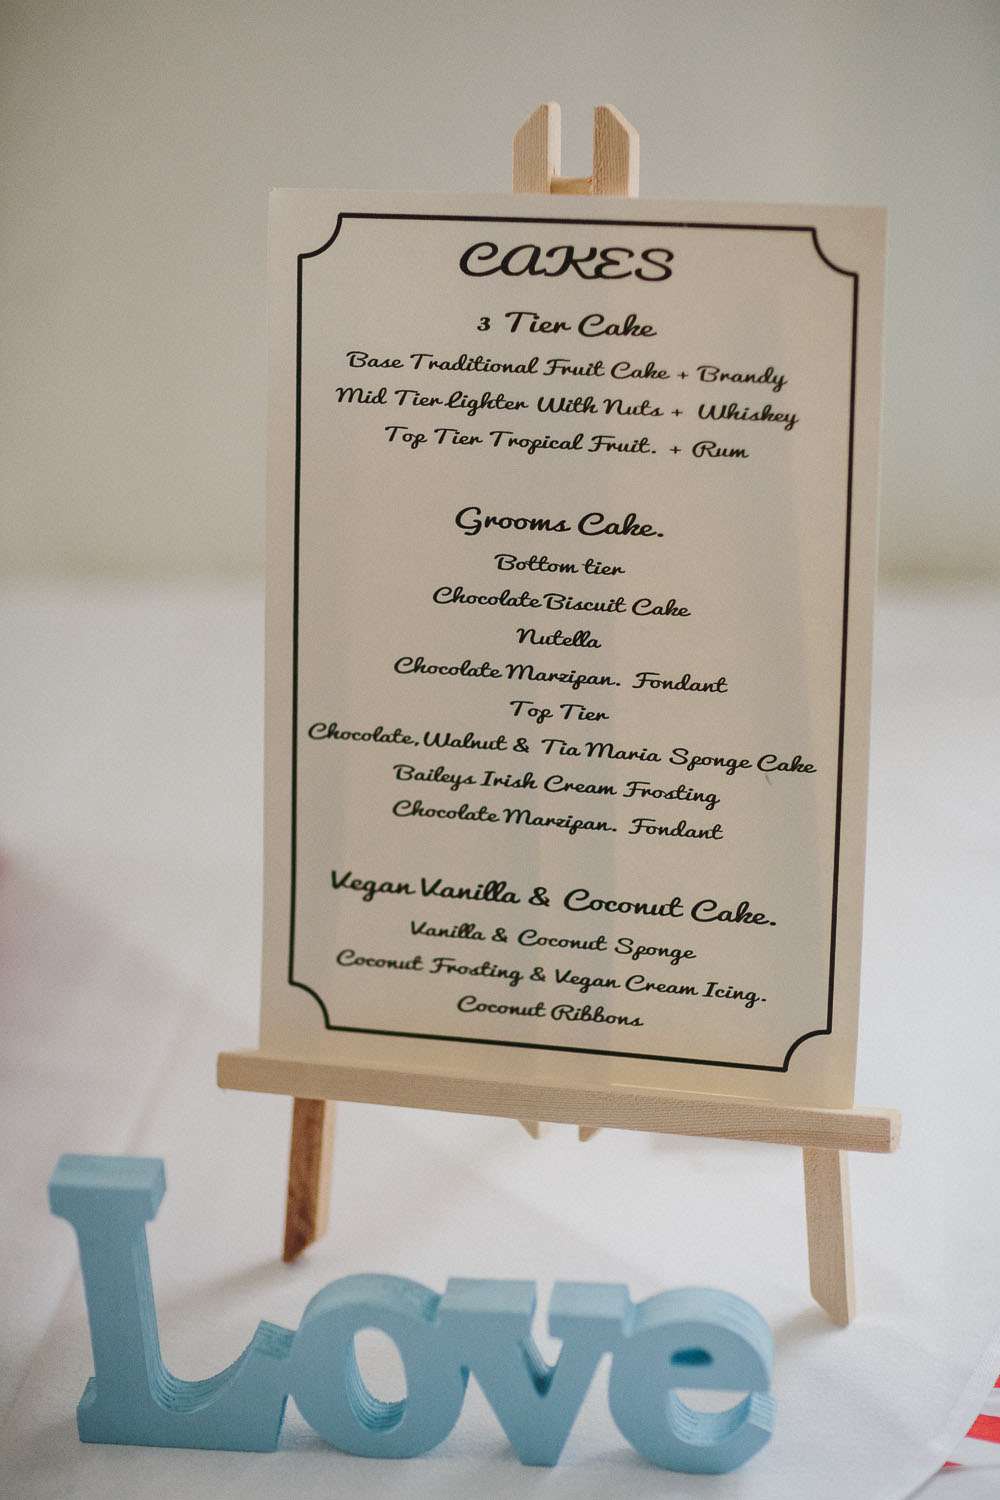 CAKES
3 Tier Cake
Base Traditional Fruit Cake + Brandy
Mid Tier Lighter With Nuts + Whiskey
Top Tier Tropical Fruit. + Rum
Grooms Cake.
Bottom tier
Chocolate Biscuit Cake
Nutella
Chocolate Marzipan. Fondant
Top Tier
Chocolate, Walnut & Tia Maria Sponge Cake
Baileys Irish Cream Frosting
Chocolate Marzipan. Fondant
Vegan Vanilla & Coconut Cake.
Vanilla & Coconut Sponge
Coconut Frosting & Vegan Cream Icing.
Coconut Ribbons
Love